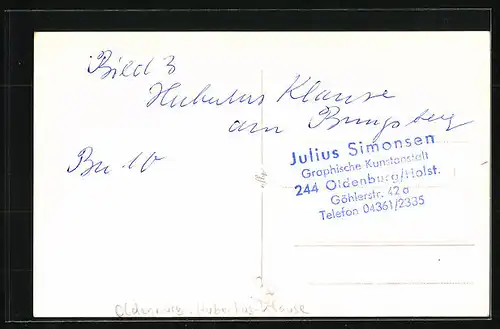 Bild 3
Hubertus Klause
am Bungsberg
Bu 10
Julius Simonsen
Graphische Kunstanstalt
244 Oldenburg/Holst.
Göhlerstr. 42a
Telefon 04361/2335
Oldenburg. Hubertus-Klause